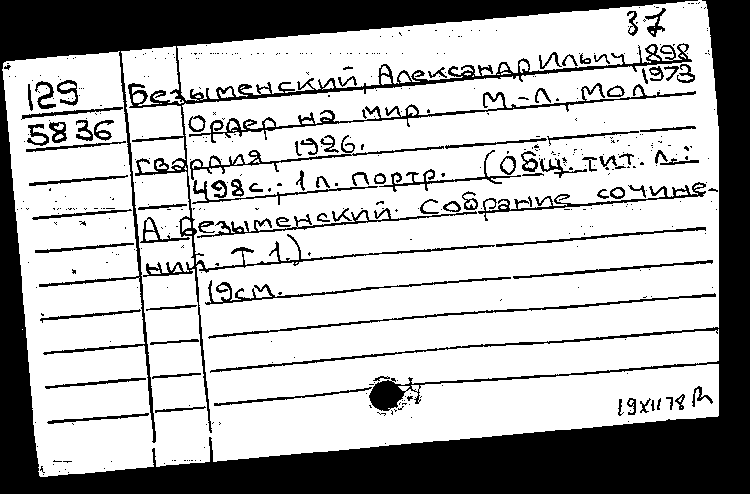 37
129 Безыменский, Александр Ильич, 1898
1973
5836 Ордер на мир. М.-Л., Мол.
гвардия, 1926.
498с.; 1л. портр. (Общ. тит. л.:
А. Безыменский. Собрание сочине-
ний. Т.1.).
19см.
19XII78